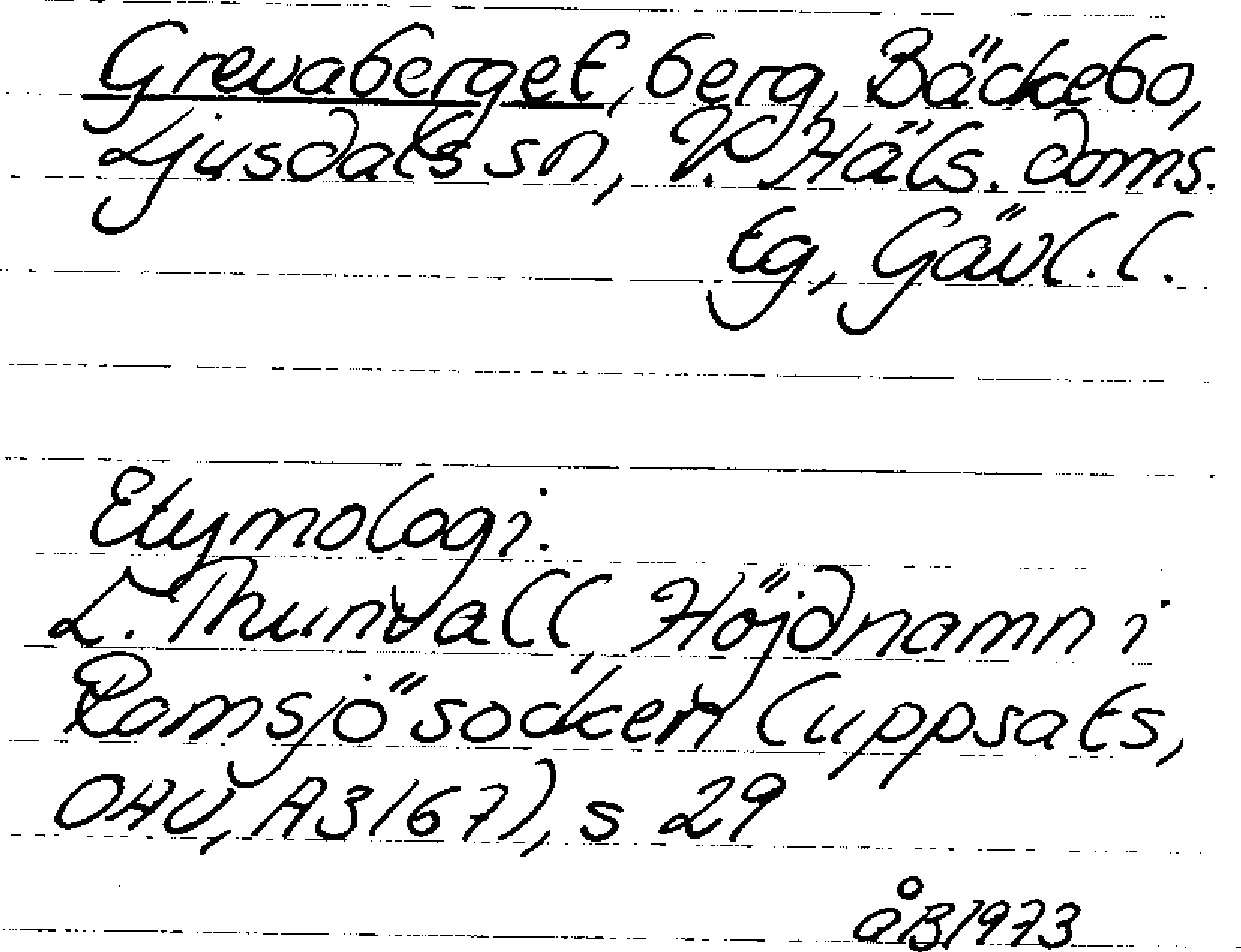 Grevaberget, berg, Bäckebo,
Ljusdals sn, V. Häls. doms.
tg, Gävl. l.
Etymologi.
L. Thunvall, Höjdnamn i
Ramsjö socken (uppsats,
OAU, A3167), s 29
åB1973